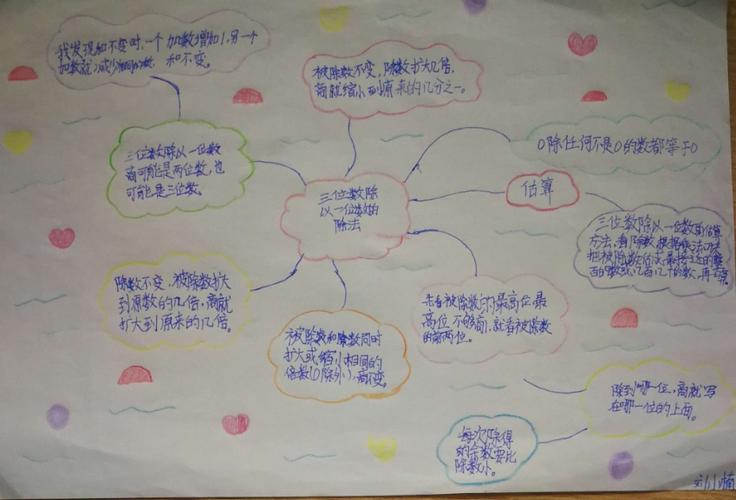 我发现和不变时,一个加数增加1,另一个
加数就减少相同的数 和不变。
被除数不变,除数扩大几倍,
商就缩小到原来的几分之一。
0除任何不是0的数都等于0
三位数除以一位数
商可能是两位数,也
可能是三位数。
三位数除
以一位数的
除法
估算
三位数除以一位数的估算
方法,看除数,根据乘法口诀
把被除数估成最接近的整
百的数或几百几十的数,再
除数不变,被除数扩大
到原数的几倍,商就
扩大到原来的几倍。
被除数和除数同时
扩大或缩小相同的
倍数(0除外),商不变。
先看被除数的最高位,最
高位不够商,就看被除数
的前两位。
除到哪一位,商就写
在哪一位的上面。
每次除得
的余数要比
除数小。
刘小楠